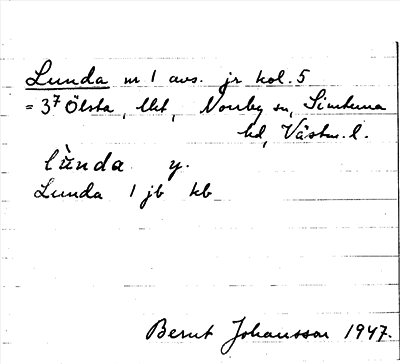 Lunda nr 1 avs. jr kol. 5
= 3⁷ Ölsta, Norrby sn, Simtuna
hd, Västm. l.
lùnda y.
Lunda 1 jb kb
Bernt Johansson 1947.